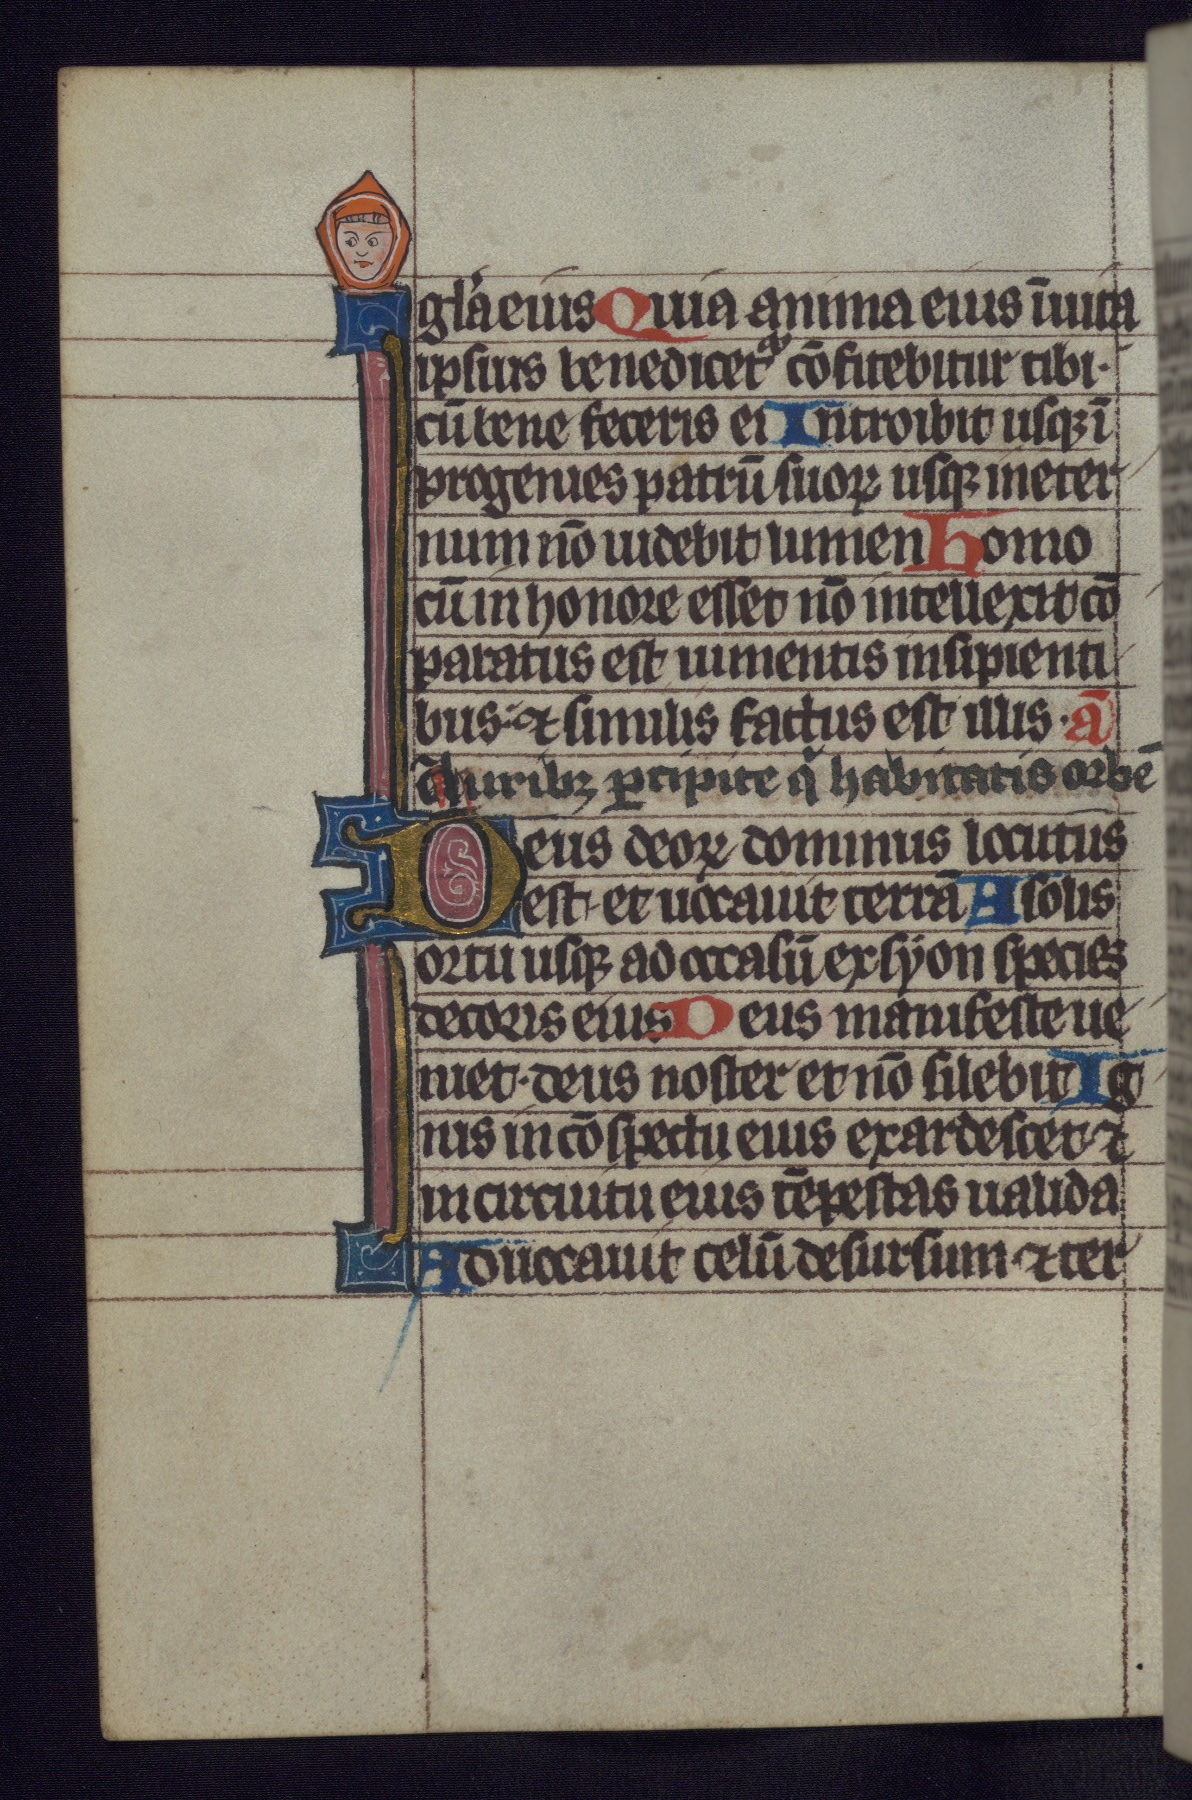 gl'a eius Quia anima eius ī uita
ipsius benedicet᷒ cōfitebitur tibi·
cū bene feceris ei Introibit usqꝫ ī
progenies patrū suoꝝ usqꝫ in eter
num nō uidebit lumen Homo
cū in honore esset nō intellexit cō
paratus est iumentis insipienti
bus· ⁊ similis factus est illis · ā
Auribꝫ ꝑcipite q̇ habitatis orbē
Deus deoꝝ dominus locutus
est· et uocauit terrā A solis
ortu usqꝫ ad occasū ex syon species
decoris eius Deus manifeste ue
niet· deus noster et nō silebit Ig
nis in cōspectu eius exardescet· ⁊
in circuitu eius tēpestas ualida
Aduocauit celū desursum· ⁊ ter